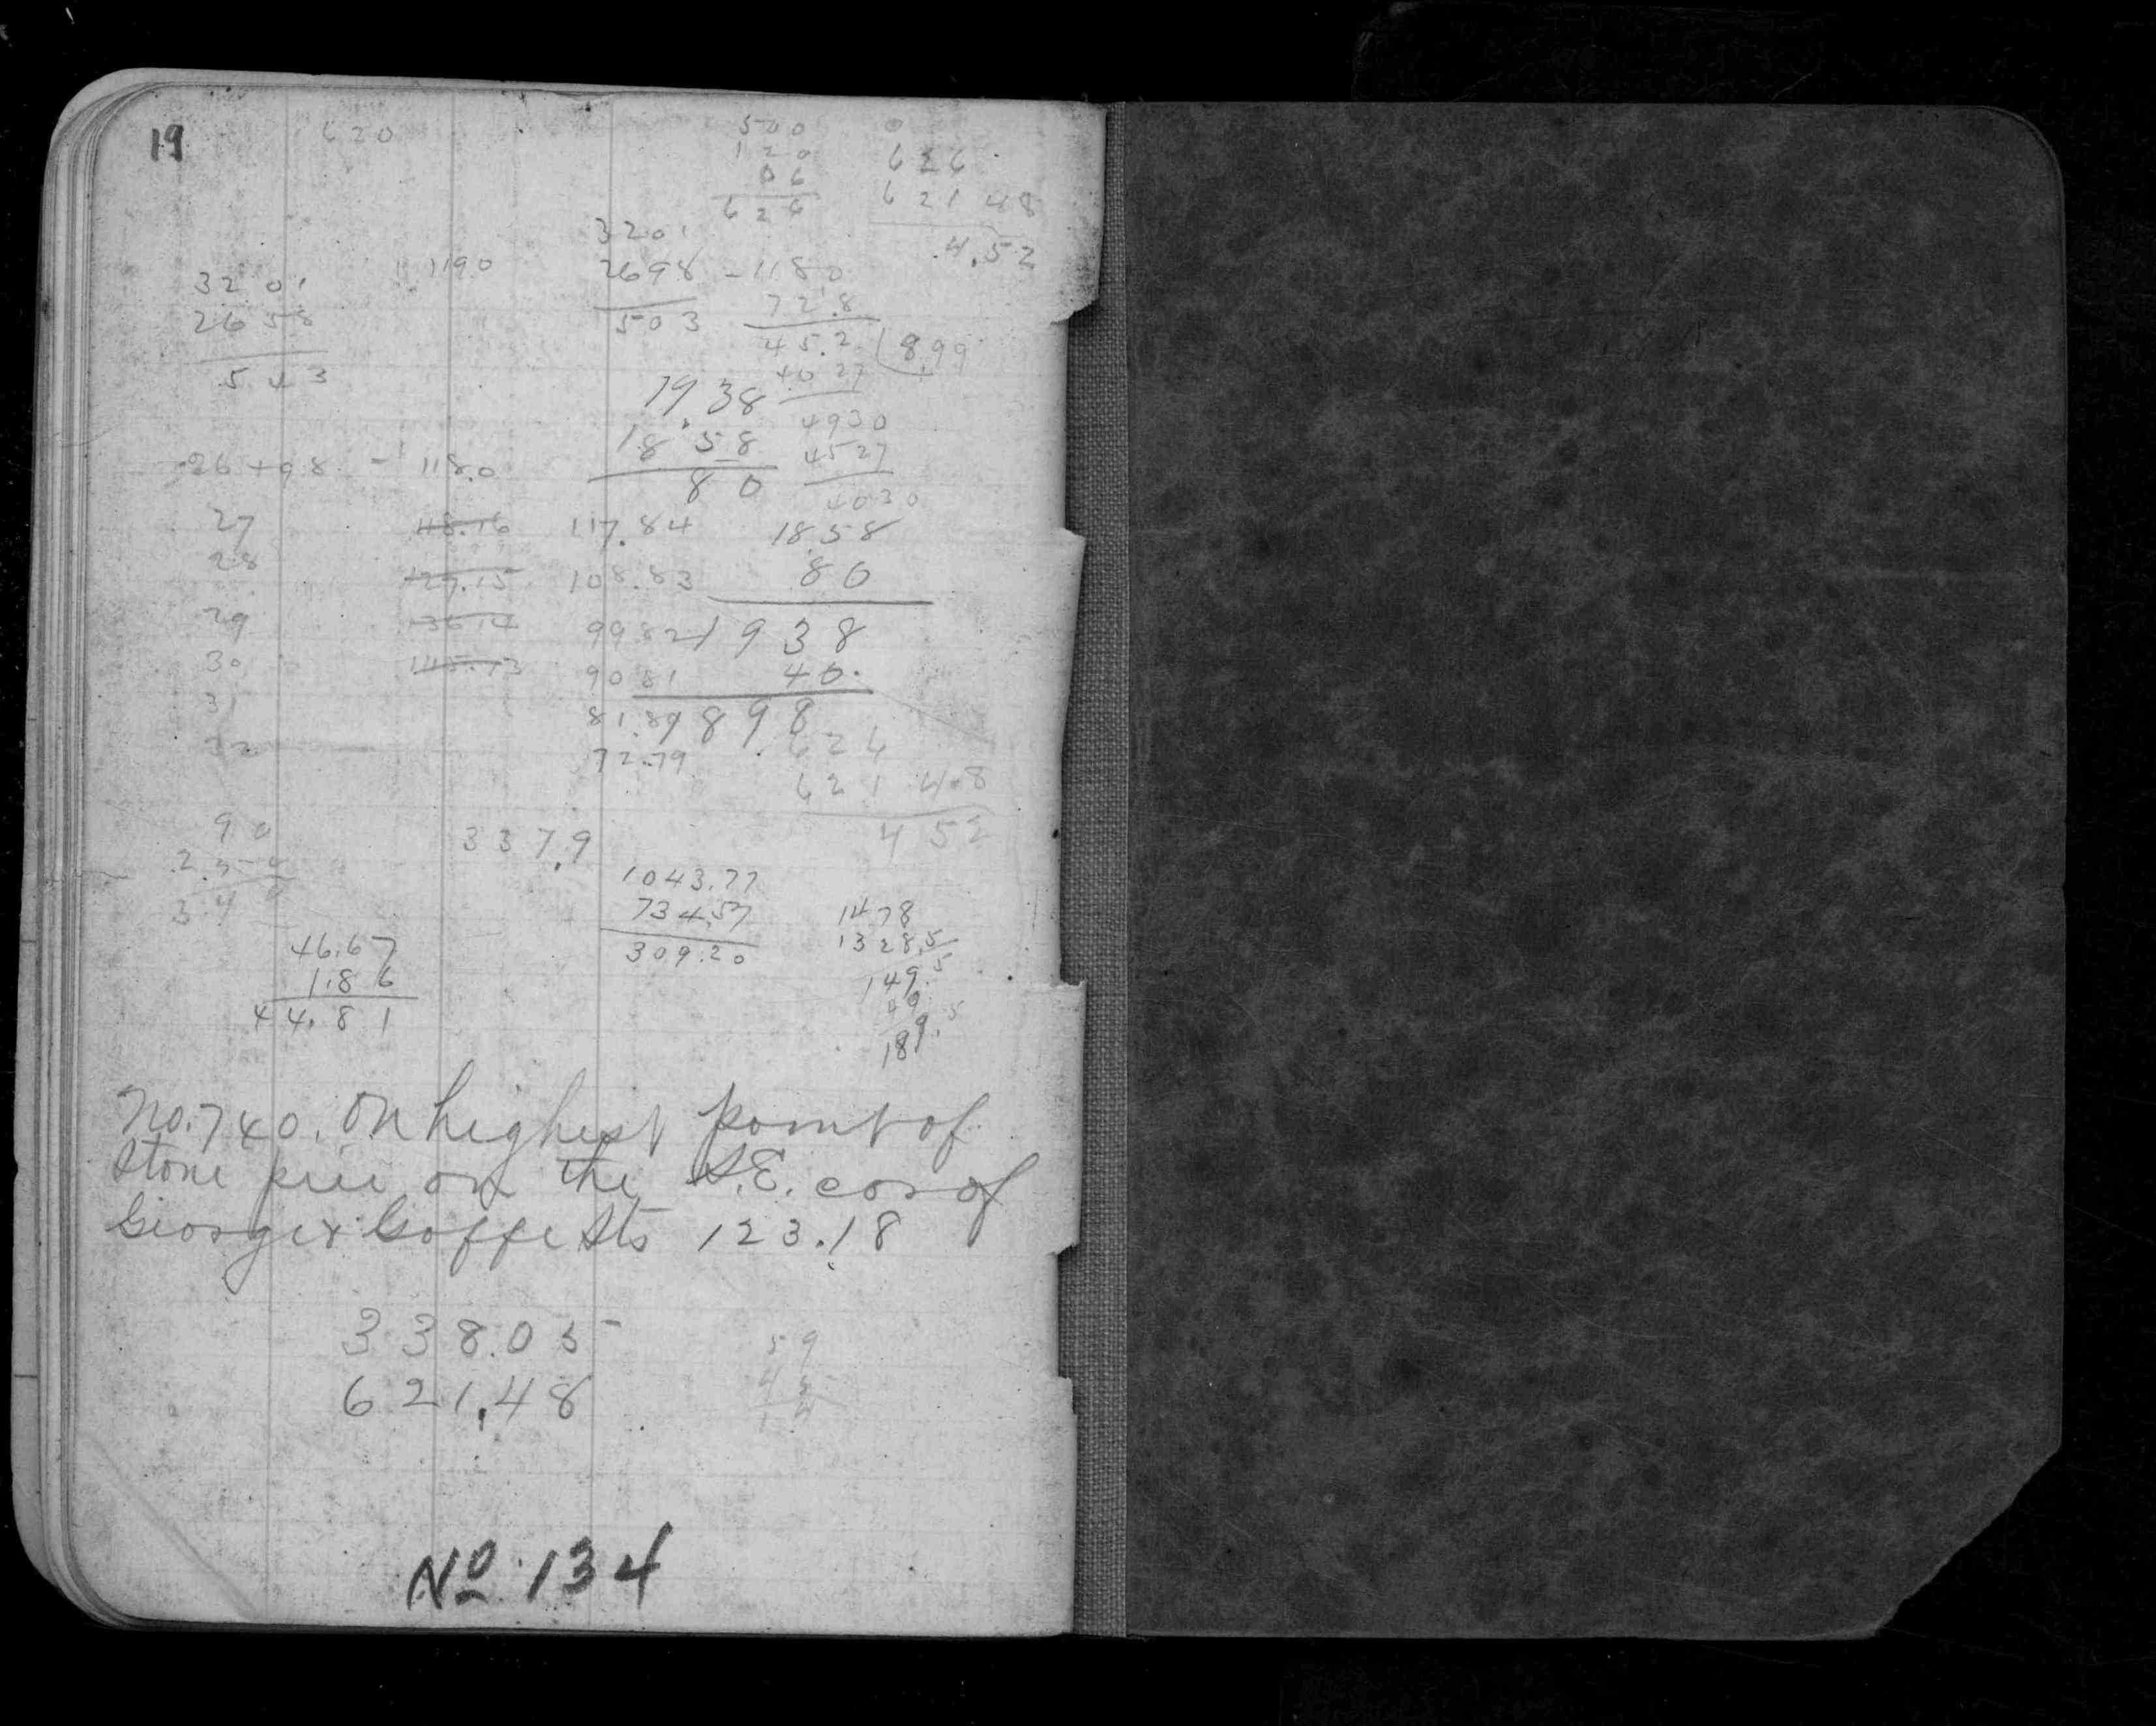 19
620
500
120
06
626
0
626
621 48
4.52
3201
2658
543
1190
3201
2698
503
-1180
72.8
45.2
8.99
40 27
4930
4527
4030
19.38
18.58
80
26+98 - 118.0
27 118.16 117.84
28 127.15 108.83
29 136.14 99 82
30 145.13 90 81
31 81.80
32 72.79
1858
80
1938
40.
1898
626
621 48
4 52
90
337.9
1043.77
734.57
309.20
1478
1328.5
149.5
49
189.5
46.67
1.86
44.81
No. 740. On highest point of
stone pier on the S.E. cor of
George & Goffe Sts 123.18
338.05
621.48
59
45
14
No. 134